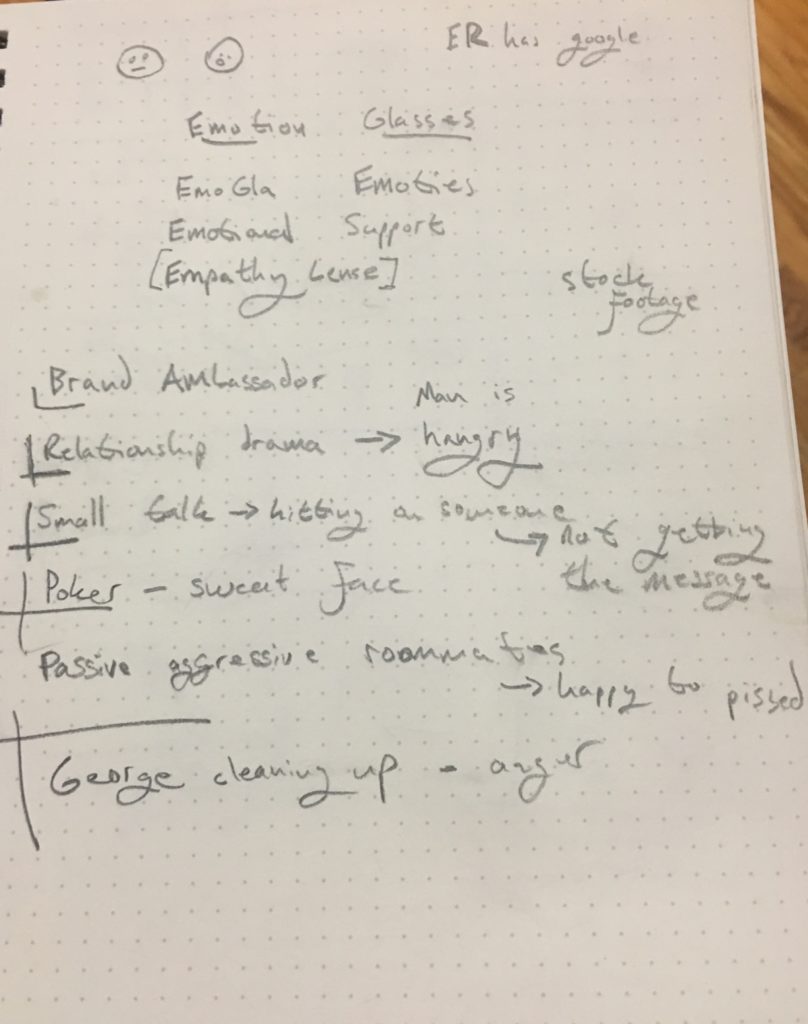 ER has google
Emotion Glasses
EmoGla Emoties
Emotional Support
[Empathy Lense]
stock
footage
Brand Ambassador
Relationship drama → Man is
hangry
Small talk → hitting on someone
→ not getting
the message
Poker - sweat face
Passive aggressive roommates
→ happy to pissed
George cleaning up - anger